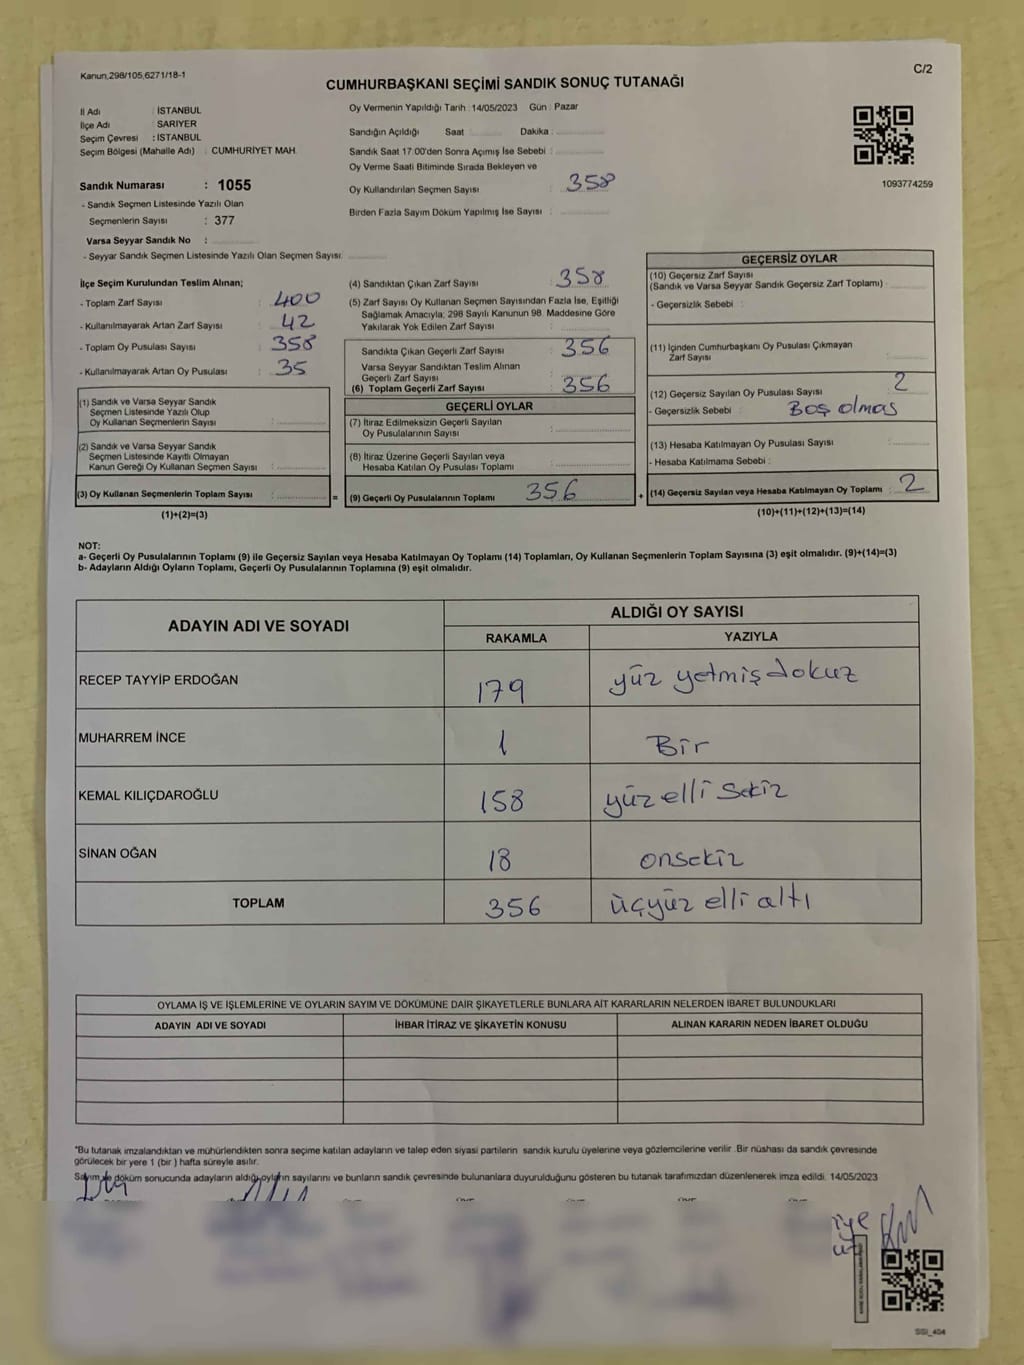 Kanun,298/105,6271/18-1
C/2
CUMHURBAŞKANI SEÇİMİ SANDIK SONUÇ TUTANAĞI
İl Adı : İSTANBUL
İlçe Adı : SARIYER
Seçim Çevresi : İSTANBUL
Seçim Bölgesi (Mahalle Adı) : CUMHURİYET MAH.
Sandık Numarası : 1055
- Sandık Seçmen Listesinde Yazılı Olan
Seçmenlerin Sayısı : 377
Varsa Seyyar Sandık No :
- Seyyar Sandık Seçmen Listesinde Yazılı Olan Seçmen Sayısı:
Oy Vermenin Yapıldığı Tarih : 14/05/2023 Gün : Pazar
Sandığın Açıldığı Saat Dakika :
Sandık Saat 17:00'den Sonra Açımış İse Sebebi :
Oy Verme Saati Bitiminde Sırada Bekleyen ve
Oy Kullandırılan Seçmen Sayısı : 358
Birden Fazla Sayım Döküm Yapılmış İse Sayısı :
1093774259
İlçe Seçim Kurulundan Teslim Alınan;
- Toplam Zarf Sayısı : 400
- Kullanılmayarak Artan Zarf Sayısı : 42
- Toplam Oy Pusulası Sayısı : 358
- Kullanılmayarak Artan Oy Pusulası : 35
(1) Sandık ve Varsa Seyyar Sandık
Seçmen Listesinde Yazılı Olup
Oy Kullanan Seçmenlerin Sayısı :
(2) Sandık ve Varsa Seyyar Sandık
Seçmen Listesinde Kayıtlı Olmayan
Kanun Gereği Oy Kullanan Seçmen Sayısı :
(3) Oy Kullanan Seçmenlerin Toplam Sayısı :
(1)+(2)=(3)
=
(4) Sandıktan Çıkan Zarf Sayısı : 358
(5) Zarf Sayısı Oy Kullanan Seçmen Sayısından Fazla İse, Eşitliği
Sağlamak Amacıyla; 298 Sayılı Kanunun 98. Maddesine Göre
Yakılarak Yok Edilen Zarf Sayısı :
Sandıkta Çıkan Geçerli Zarf Sayısı : 356
Varsa Seyyar Sandıktan Teslim Alınan
Geçerli Zarf Sayısı :
(6) Toplam Geçerli Zarf Sayısı : 356
GEÇERLİ OYLAR
(7) İtiraz Edilmeksizin Geçerli Sayılan
Oy Pusulalarının Sayısı :
(8) İtiraz Üzerine Geçerli Sayılan veya
Hesaba Katılan Oy Pusulası Toplamı :
(9) Geçerli Oy Pusulalarının Toplamı 356
+
GEÇERSİZ OYLAR
(10) Geçersiz Zarf Sayısı
(Sandık ve Varsa Seyyar Sandık Geçersiz Zarf Toplamı) :
- Geçersizlik Sebebi :
(11) İçinden Cumhurbaşkanı Oy Pusulası Çıkmayan
Zarf Sayısı :
(12) Geçersiz Sayılan Oy Pusulası Sayısı : 2
- Geçersizlik Sebebi : Boş olmas
(13) Hesaba Katılmayan Oy Pusulası Sayısı :
- Hesaba Katılmama Sebebi :
(14) Geçersiz Sayılan veya Hesaba Katılmayan Oy Toplamı : 2
(10)+(11)+(12)+(13)=(14)
NOT:
a- Geçerli Oy Pusulalarının Toplamı (9) ile Geçersiz Sayılan veya Hesaba Katılmayan Oy Toplamı (14) Toplamları, Oy Kullanan Seçmenlerin Toplam Sayısına (3) eşit olmalıdır. (9)+(14)=(3)
b- Adayların Aldığı Oyların Toplamı, Geçerli Oy Pusulalarının Toplamına (9) eşit olmalıdır.
ADAYIN ADI VE SOYADI ALDIĞI OY SAYISI
RAKAMLA YAZIYLA
RECEP TAYYİP ERDOĞAN 179 yüz yetmiş dokuz
MUHARREM İNCE 1 Bir
KEMAL KILIÇDAROĞLU 158 yüz elli sekiz
SİNAN OĞAN 18 onsekiz
TOPLAM 356 üçyüz elli altı
OYLAMA İŞ VE İŞLEMLERİNE VE OYLARIN SAYIM VE DÖKÜMÜNE DAİR ŞİKAYETLERLE BUNLARA AİT KARARLARIN NELERDEN İBARET BULUNDUKLARI
ADAYIN ADI VE SOYADI İHBAR İTİRAZ VE ŞİKAYETİN KONUSU ALINAN KARARIN NEDEN İBARET OLDUĞU
*Bu tutanak imzalandıktan ve mühürlendikten sonra seçime katılan adayların ve talep eden siyasi partilerin sandık kurulu üyelerine veya gözlemcilerine verilir. Bir nüshası da sandık çevresinde
görülecek bir yere 1 (bir ) hafta süreyle asılır.
Sayım ve döküm sonucunda adayların aldığı oyların sayılarını ve bunların sandık çevresinde bulunanlara duyurulduğunu gösteren bu tutanak tarafımızdan düzenlenerek imza edildi. 14/05/2023
SSI_404